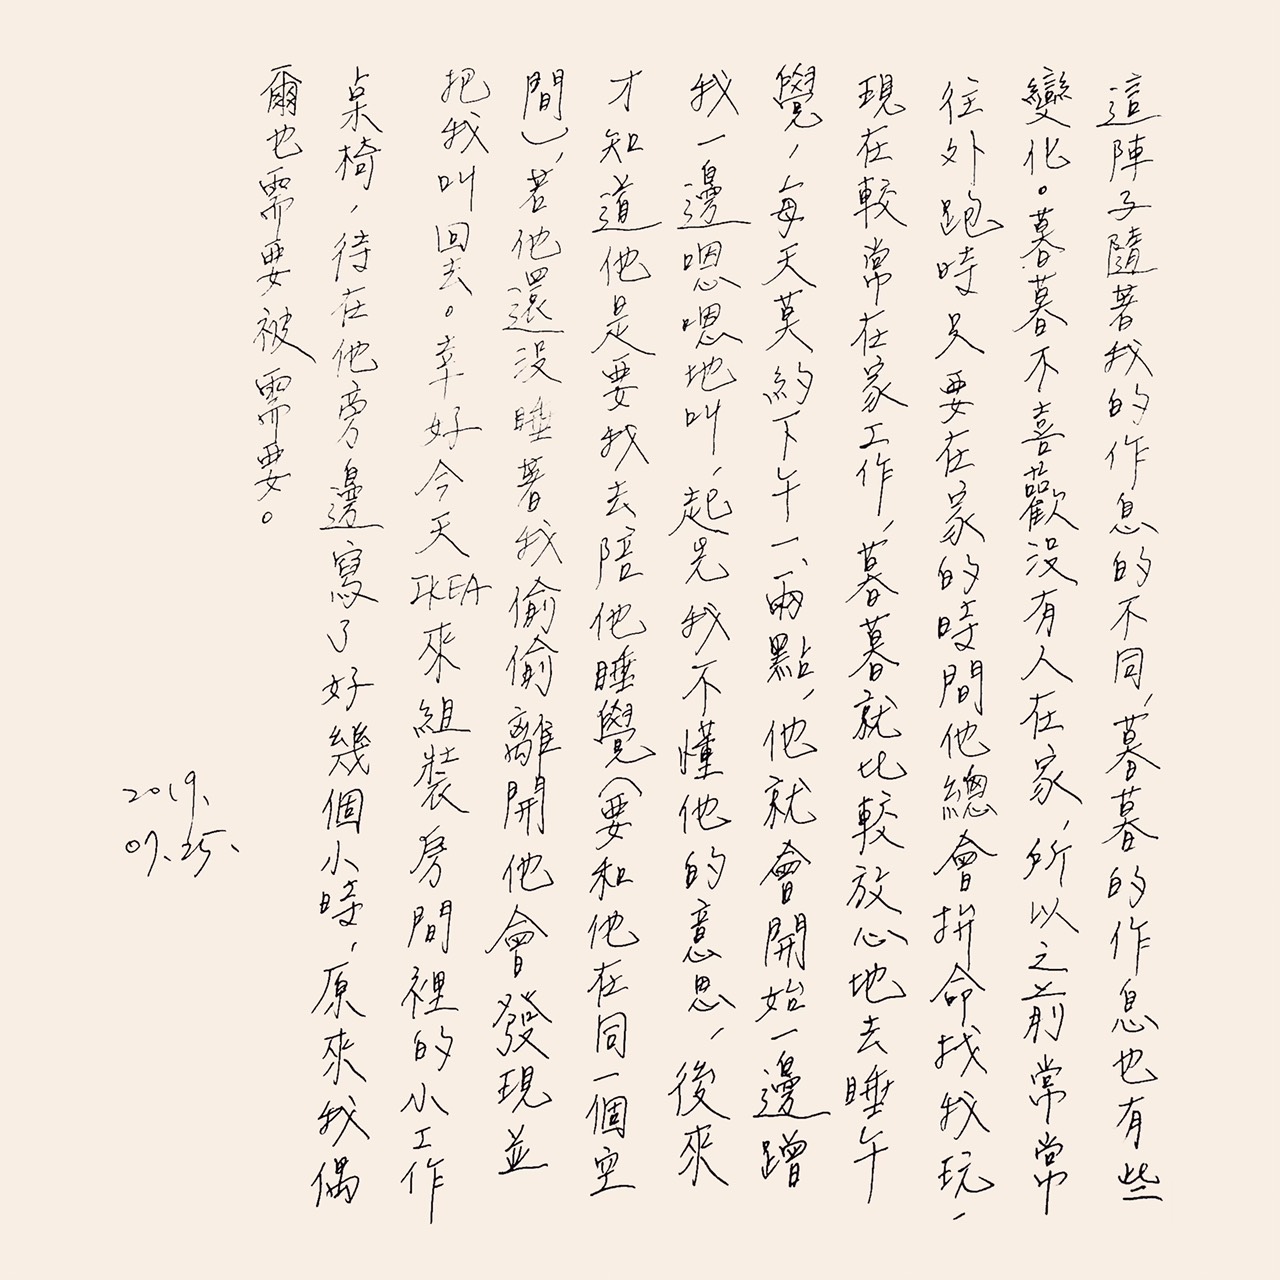 這陣子隨著我的作息的不同，暮暮的作息也有些
變化。暮暮不喜歡沒有人在家，所以之前常常
往外跑時只要在家的時間他總會拚命找我玩，
現在較常在家工作，暮暮就比較放心地去睡午
覺，每天莫約下午一、兩點，他就會開始一邊蹭
我一邊嗯嗯地叫，起先我不懂他的意思，後來
才知道他是要我去陪他睡覺（要和他在同一個空
間），若他還沒睡著我偷偷離開他會發現並
把我叫回去。幸好今天IKEA來組裝房間裡的小工作
桌椅，待在他旁邊寫了好幾個小時，原來我偶
爾也需要被需要。
2019.
07.25.